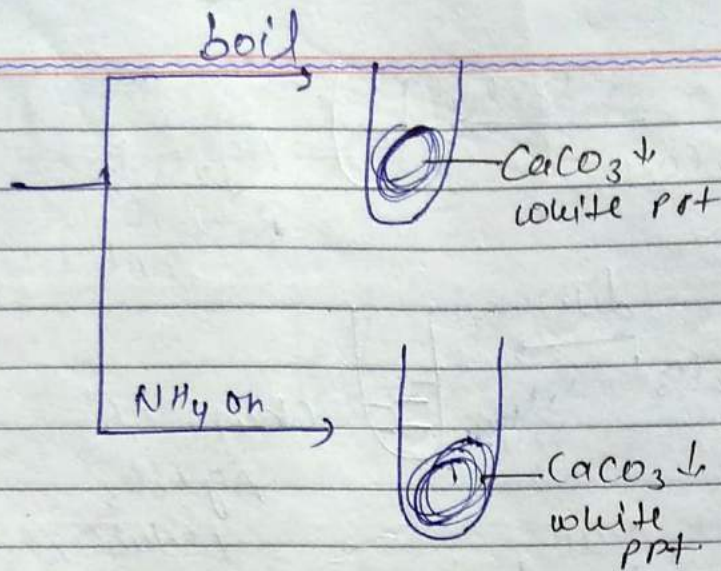 boil
CaCO₃ ↓
white ppt
NH₄ OH
CaCO₃ ↓
white
ppt